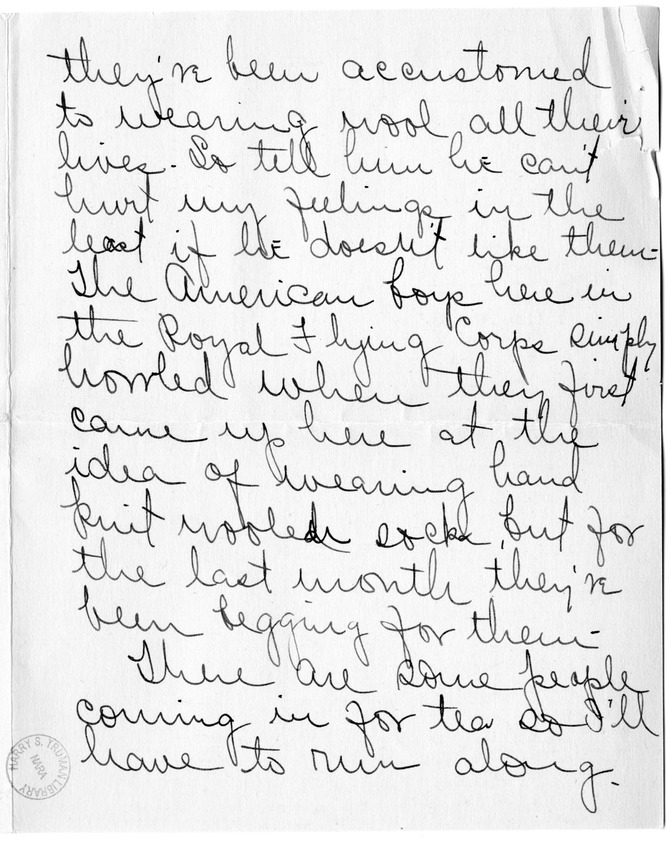 they've been accustomed
to wearing wool all their
lives. So tell him he can't
hurt my feelings in the
least if he doesn't like them-
The American boys here in
the Royal Flying Corps simply
howled when they first
came up here at the
idea of wearing hand
knit woolen socks, but for
the last month they've
been begging for them-
There are some people
coming in for tea so I'll
have to run along.
HARRY S. TRUMAN LIBRARY
NARA